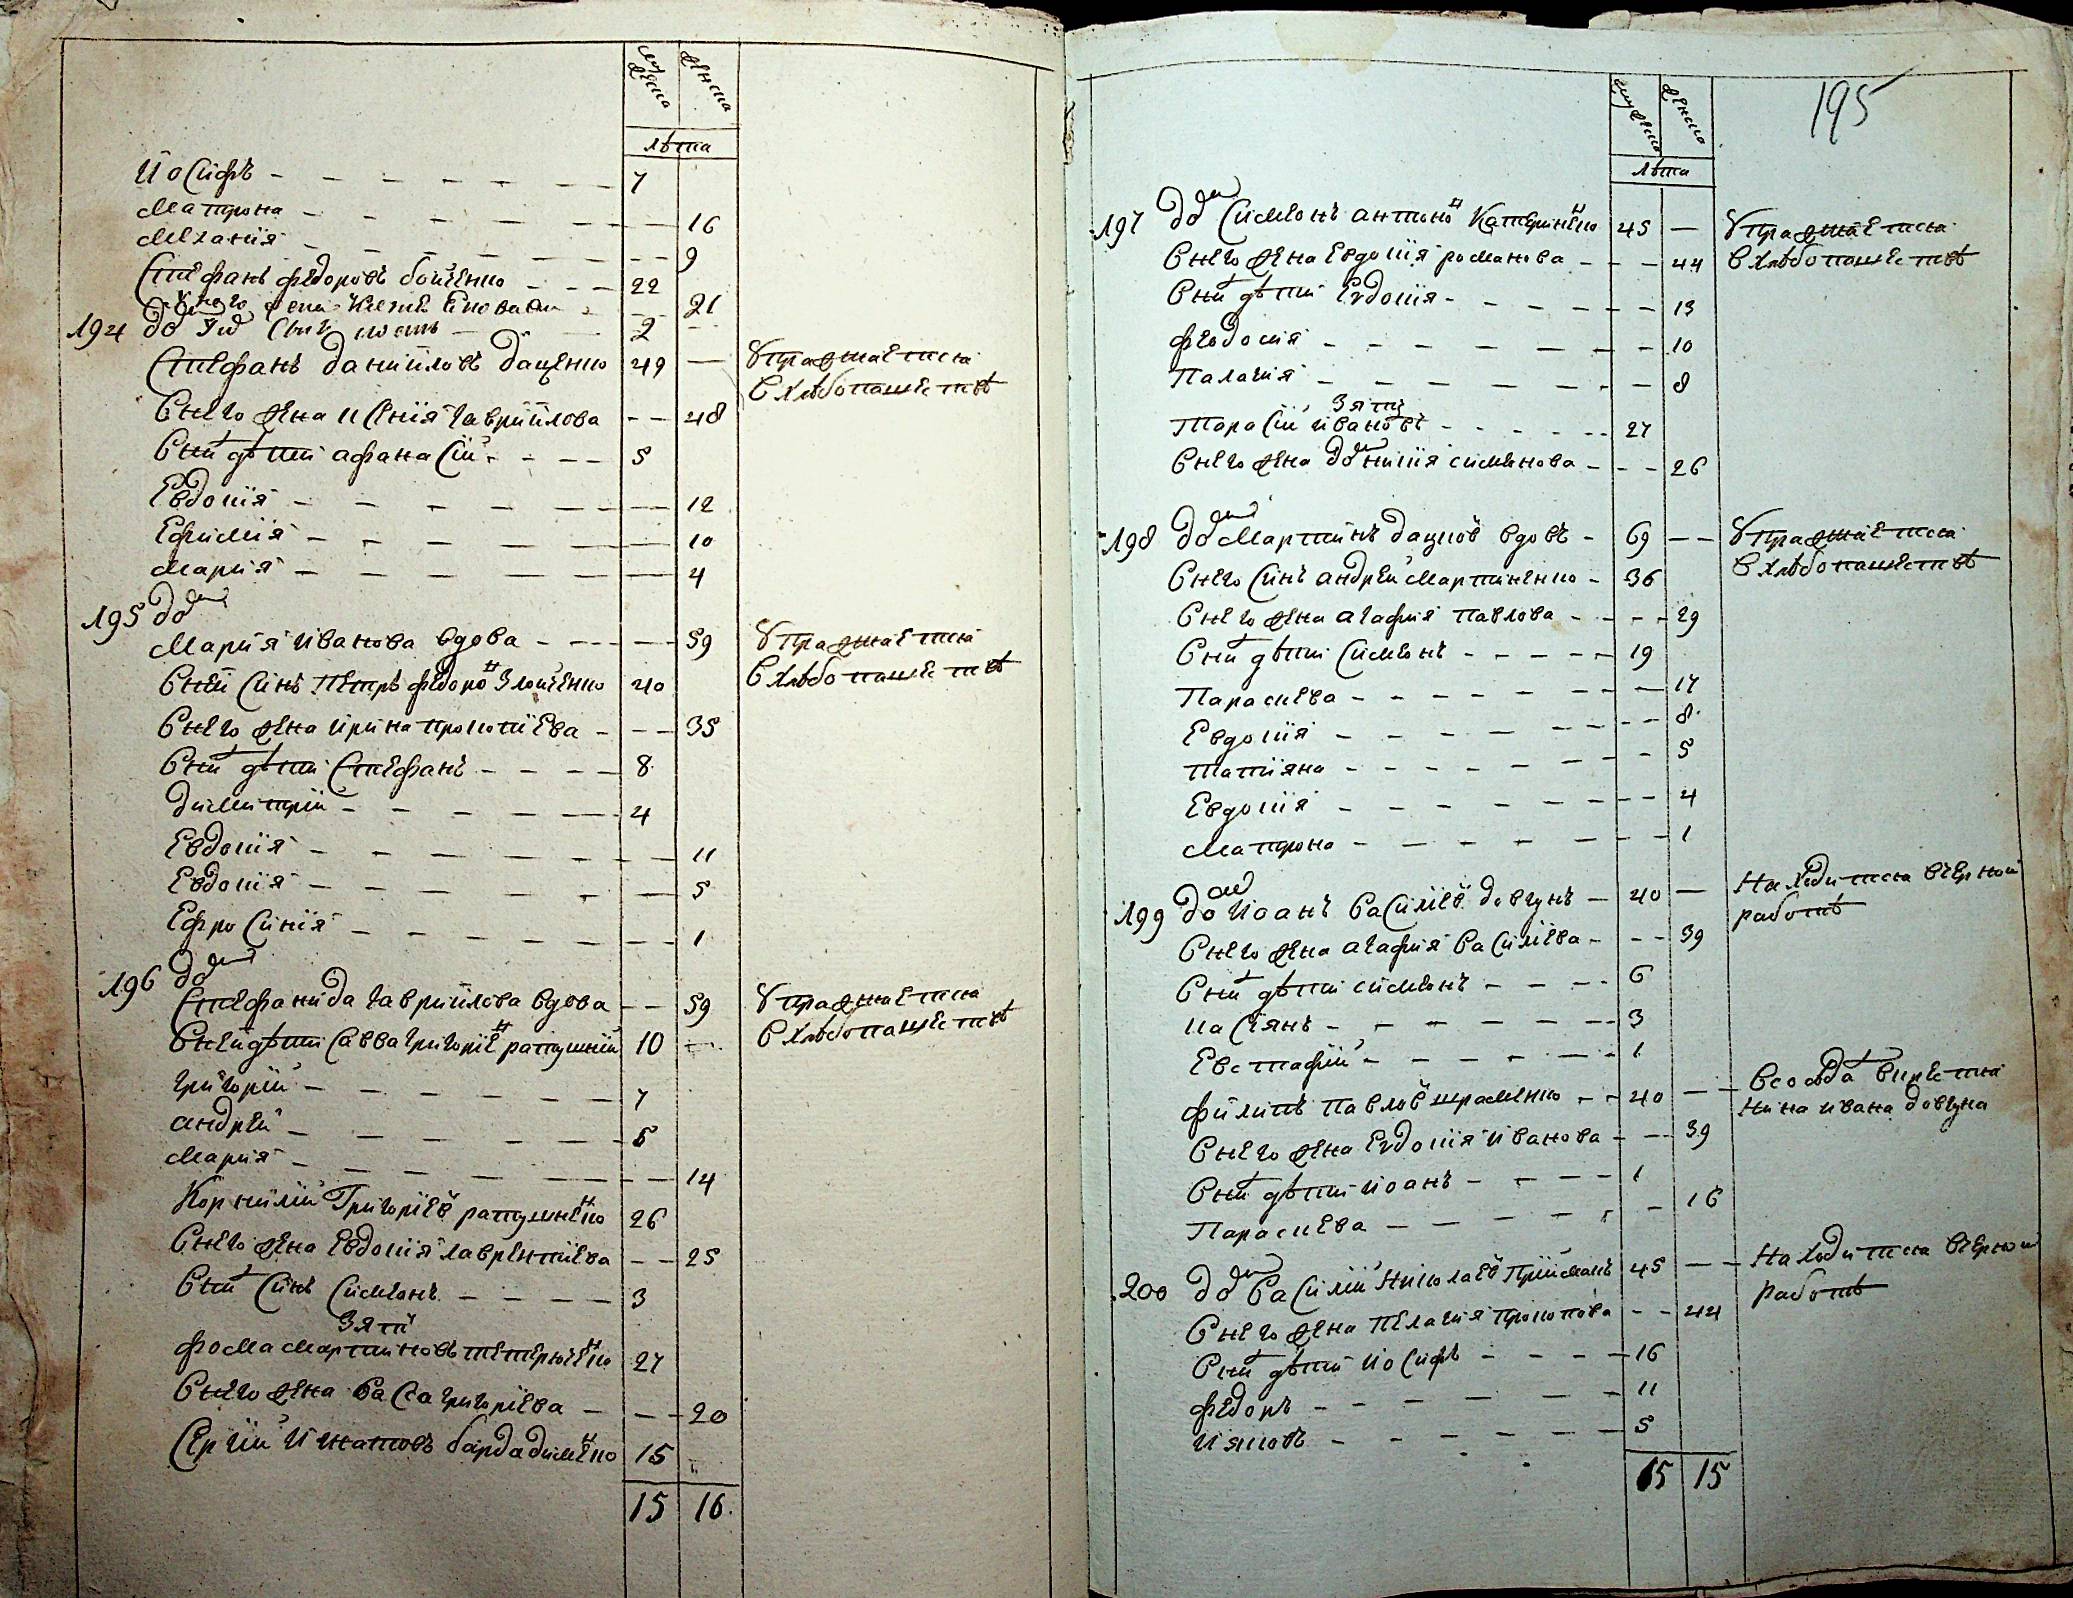 мужеска женска
лѣта
Иосифъ - - - - - - - 7
Матрона - - - - - - - 16
Меланія - - - - - - - 9
Стефанъ Федоровъ - - - 22
У него жена - - 21
194 до Сынъ - - 2
Стефанъ Даниіловъ Даценко 49 —
Упражняется
В хлѣбопашествѣ
В него жена Ксенія Гавриілова - - 48
В ни дѣти Афанасій - - - 5
Евдокія - - - - - - 12
Ефимія - - - - - - 10
Марія - - - - - - 4
195 дом
Марія Иванова вдова - - - 59
Упражняется
В хлѣбопашествѣ
В ней синъ Петръ Федоро 40
В него жена Ирина Прокопіева - - - 35
В ни дѣти Стефанъ - - - - 8
Димитрій - - - - - 4
Евдокія - - - - - - - 11
Евдокія - - - - - - 5
Ефросинія - - - - - - - 1
196 дом
Стефанида Гавриілова вдова - - 59
Упражняется
В хлѣбопашествѣ
В ней дѣти Савва Григоріе 10 —
Григорій - - - - - - 7
Андрей - - - - - - 5
Марія - - - - - - - 14
Корнилій Григоріев 26
В него жена Евдокія Лаврентіева - - 25
В ни синъ Симеонъ - - - - 3
Зяти
Фома Мартиновъ 27
В него жена Васса Григоріева - - - 20
Сергій Игнатовъ 15
15 16
195
мужеско женско
лѣта
197 дом Симеонъ Антоно Катерине'ко 45 —
Упражняется
В хлѣбопашествѣ
В него жена Евдокія Романова - - - 44
В ни дѣти Евдокія - - - - - - 13
Феодосія - - - - - - - 10
Палагія - - - - - - - 8
Зять
Тарасій Ивановъ - - - - - 27
В него жена Домникія Симеонова - - - 26
198 дом Мартинъ Дацков вдовъ - 69 - -
Упражняется
В хлѣбопашествѣ
В него синъ Андрей Мартиненко - 36
В него жена Агафия Павлова - - - - 29
В ни дѣти Симеонъ - - - - - 19
Параскева - - - - - - - 17
Евдокія - - - - - - - 8
Татіяна - - - - - - - 5
Евдокія - - - - - - - 4
Матрона - - - - - - - 1
199 дом Иоанъ Василіев Довгунъ - 40 —
Находится в черной
работѣ
В него жена Агафия Василіева - - - 39
В ни дѣти Симеонъ - - - - 6
Касіянъ - - - - - - 3
Евстафій - - - - - - 1
Филипъ Павлов - - 40 - -
В сосѣда
Ивана Довгуна
В него жена Евдокія Иванова - - - 39
В ни дѣти Иоанъ - - - - 1
Параскева - - - - - - 16
200 дом Василій Николаев Приймакъ 45 - -
Находится в черной
работѣ
В него жена Пелагія Прокопова - - 44
В ни дѣти Иосифъ - - - - 16
Федоръ - - - - - - 11
Ияковъ - - - - - - 5
15 15